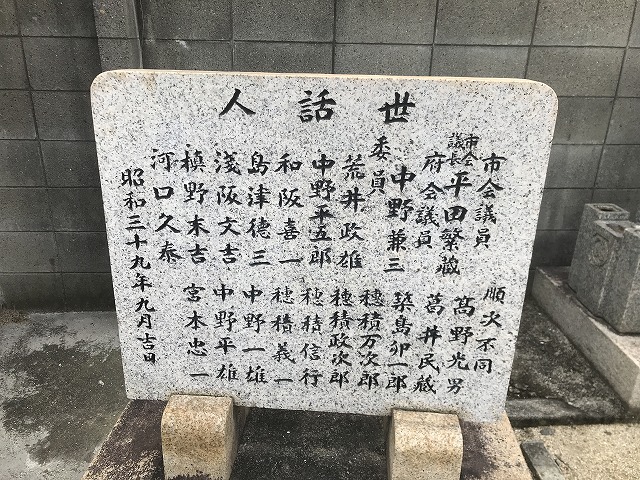 世話人
市会議員 順次不同
市会議長 平田繁蔵 髙野光男
府会議員 葛井民蔵
中野兼三 築島卯一郎
委員 穂積万次郎
荒井政雄 穂積政次郎
中野平五郎 穂積信行
和阪喜一 穂積義一
島津德三 中野一雄
淺阪文吉 中野平雄
槙野末吉 宮本忠一
河口久泰
昭和三十九年九月吉日